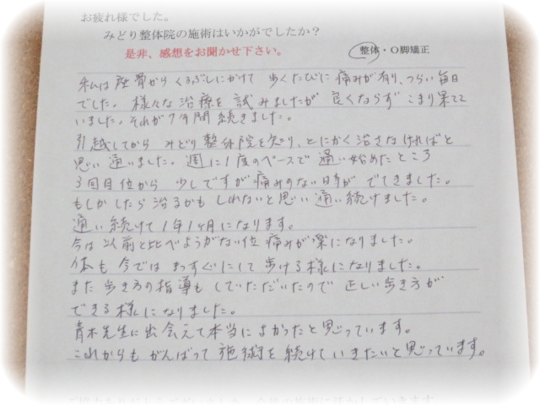 お疲れ様でした。
みどり整体院の施術はいかがでしたか？
是非、感想をお聞かせ下さい。
整体・O脚矯正
私は座骨からくるぶしにかけて 歩くたびに痛みが有り、つらい毎日
でした。様々な治療を試みましたが 良くならず こまり果てて
いました。それが7ヶ月間 続きました。
引越してから みどり整体院を知り、とにかく治さなければと
思い通いました。週に1度のペースで通い始めたところ
3回目位から 少しですが痛みのない日が でてきました。
もしかしたら治るかもしれないと思い通い続けました。
通い続けて1年1ヶ月になります。
今は以前と比べようがない位 痛みが楽になりました。
体も今では まっすぐにして歩ける様になりました。
また歩き方の指導も していただいたので 正しい歩き方が
できる様になりました。
青木先生に出会えて本当によかったと思っています。
これからも がんばって施術を続けていきたいと思っています。